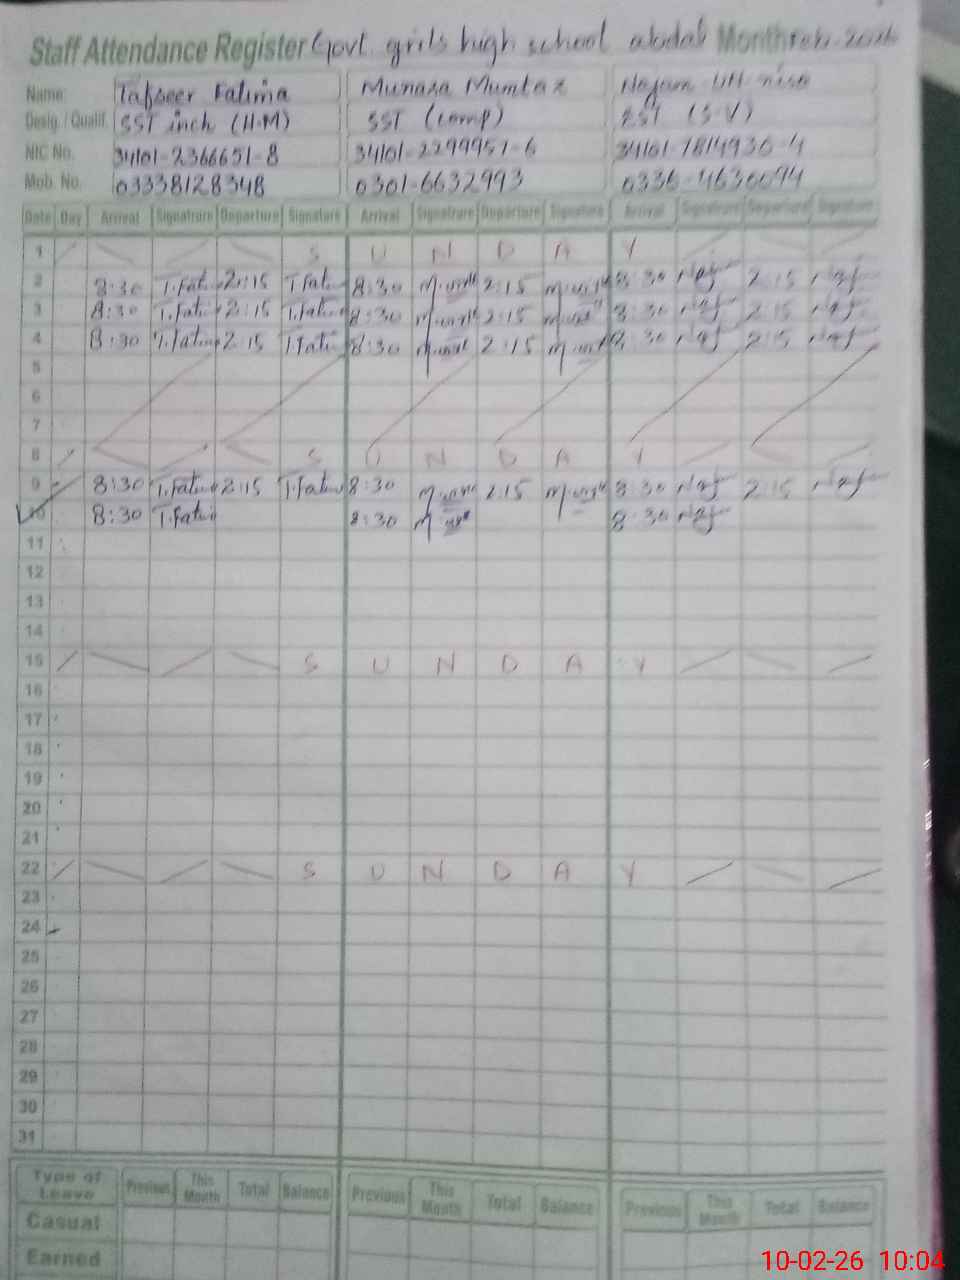 Staff Attendance Register Govt. grils high school abdal Month Feb-2026
Name: Tafseer Fatima Munaza Mumtaz Najam-UN-nisa
Desig. / Qualif. SST inch (H.M) SST (comp) EST (S.V)
NIC No. 34101-2366651-8 34101-2299951-6 34101-1814930-4
Mob. No. 03338128348 0301-6632993 0336-4630094
Date Day Arrival Signatrure Departure Signature Arrival Signatrure Departure Signature Arrival Signatrure Departure Signature
1 S U N D A Y
2 8:30 T.Fatima 2:15 T.Fatima 8:30 2:15 8:30 Naj 2:15 Naj
3 8:30 T.Fatima 2:15 T.Fatima 8:30 2:15 8:30 Naj 2:15 Naj
4 8:30 T.Fatima 2:15 T.Fatima 8:30 2:15 8:30 Naj 2:15 Naj
5
6
7
8 S U N D A Y
9 8:30 T.Fatima 2:15 T.Fatima 8:30 2:15 8:30 Naj 2:15 Naj
10 8:30 T.Fatima 8:30 8:30 Naj
11
12
13
14
15 S U N D A Y
16
17
18
19
20
21
22 S U N D A Y
23
24
25
26
27
28
29
30
31
Type of Leave Previous This Month Total Balance Previous This Month Total Balance Previous This Month Total Balance
Casual
Earned
10-02-26 10:04